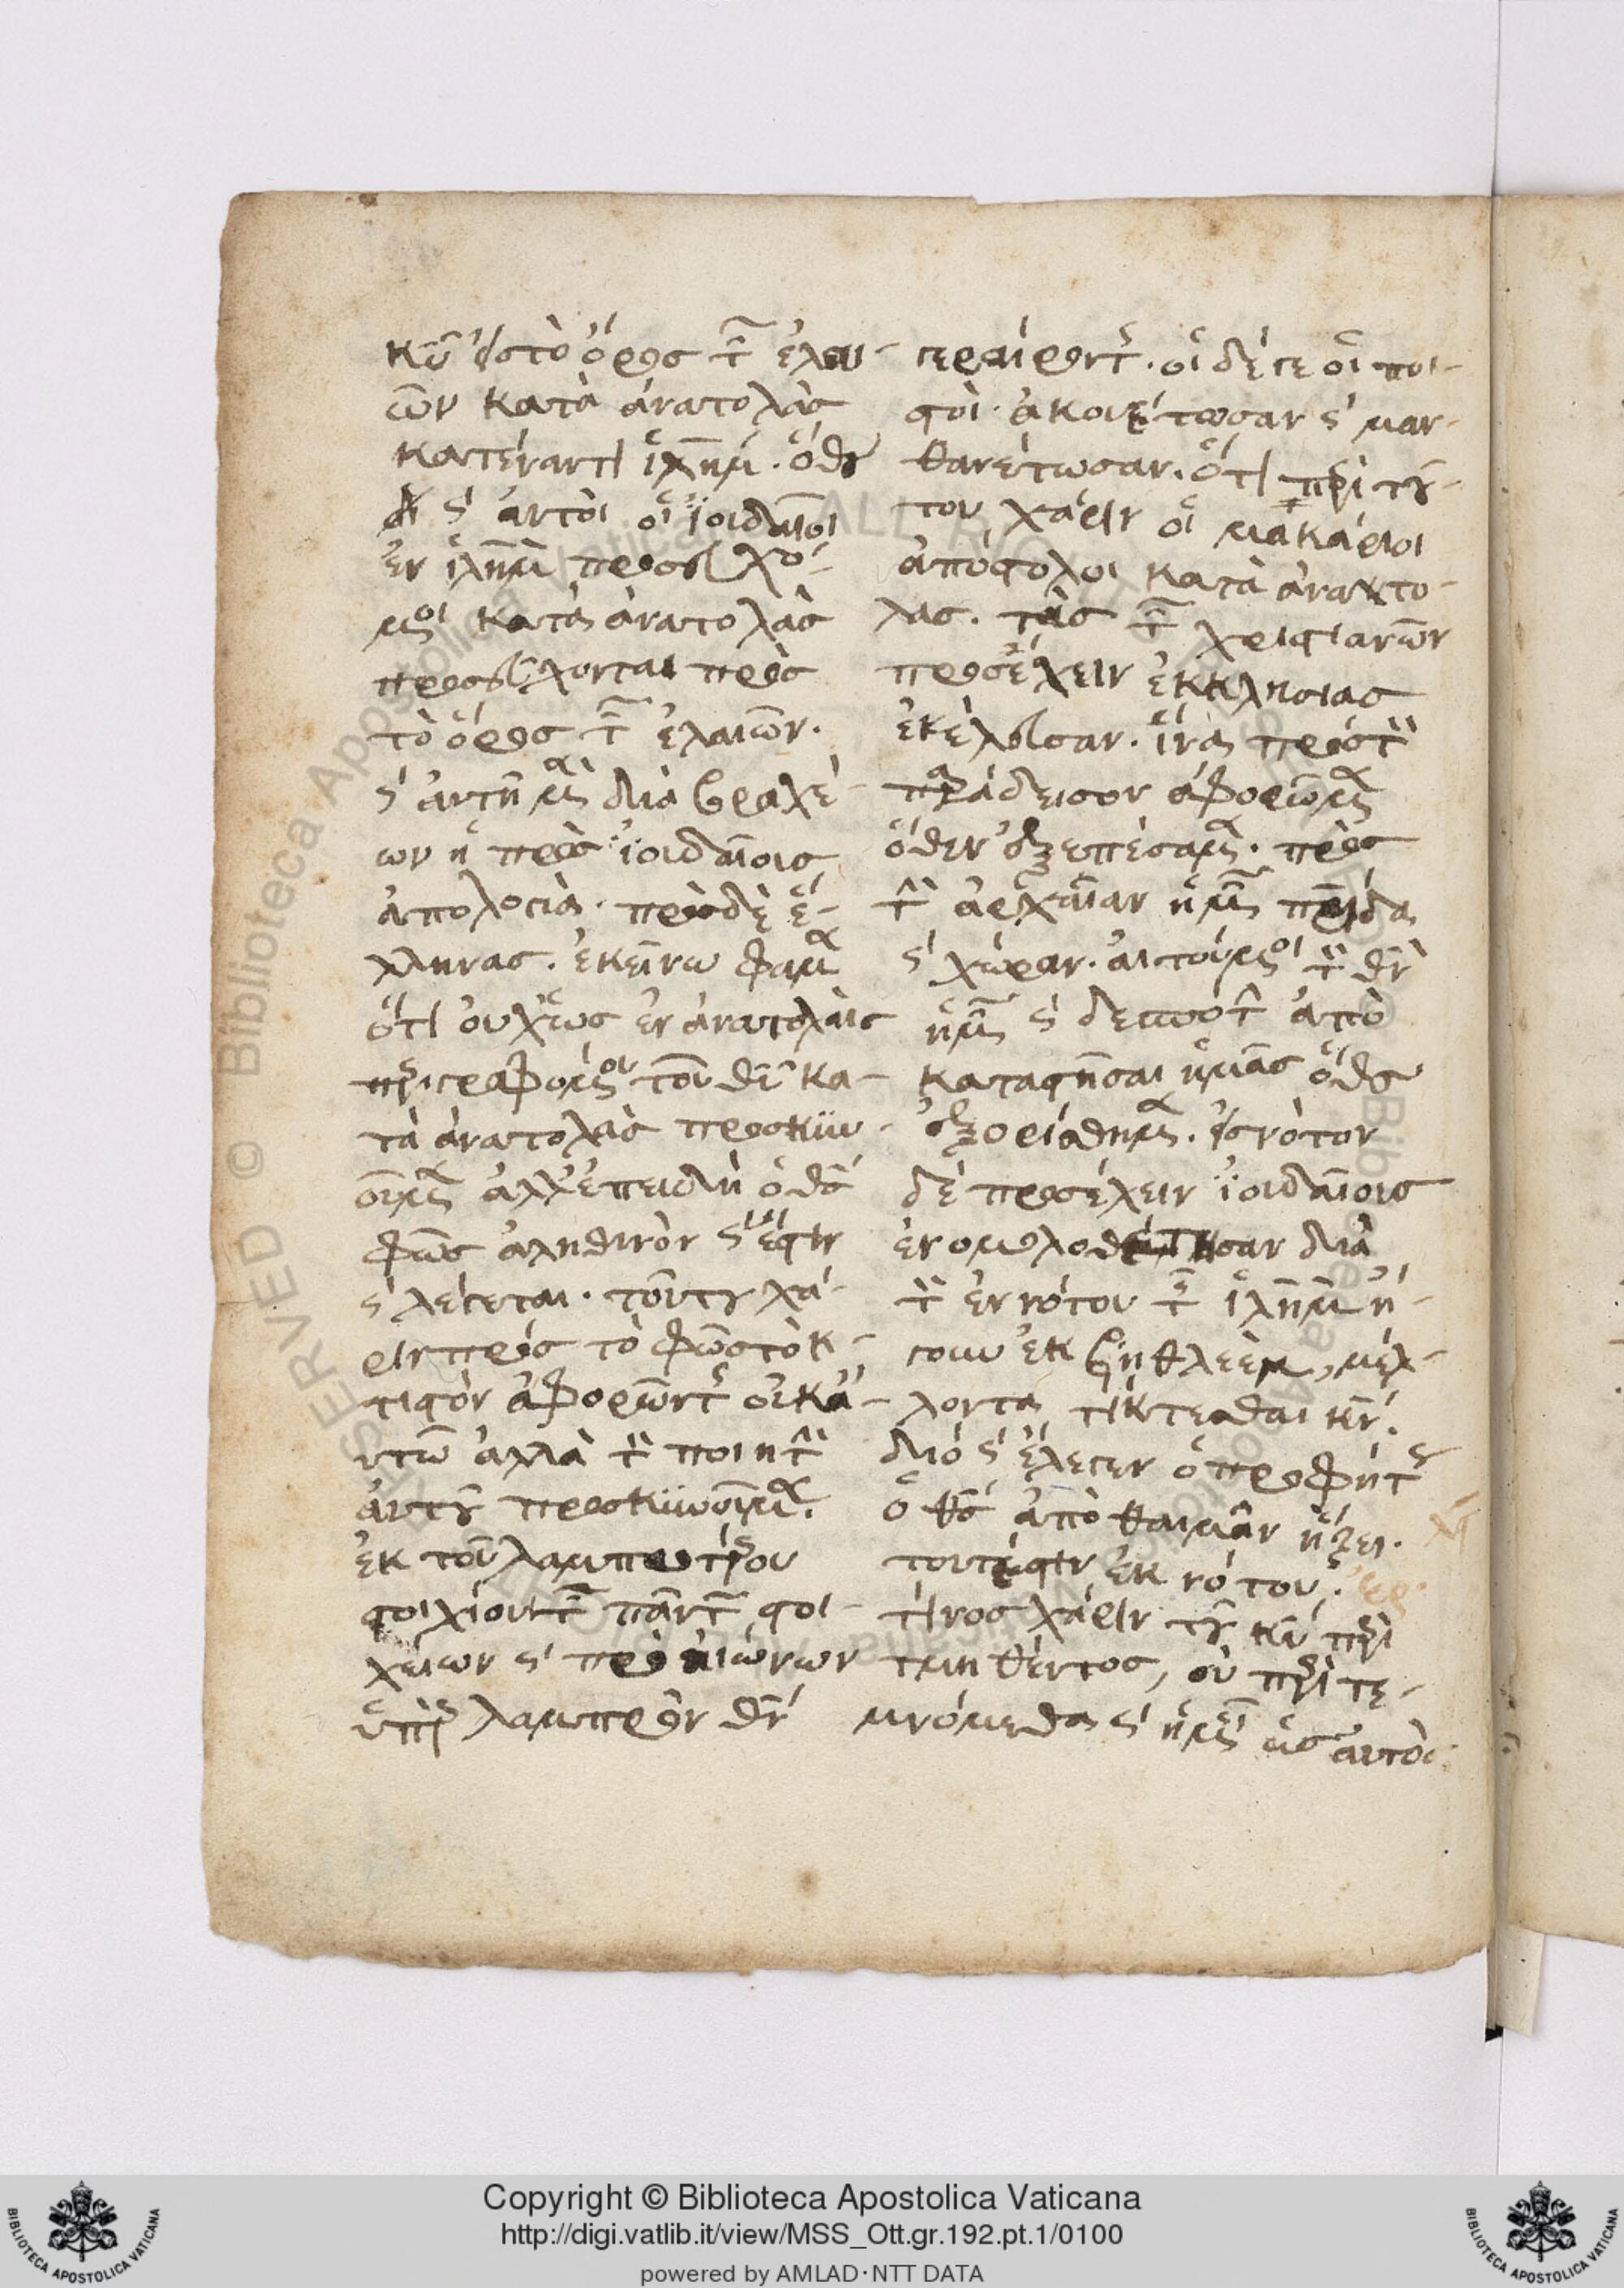 κῦ εἰς τὸ ὄρος τ̅ ἐλαι-
ῶν κατὰ ἀνατολὰς
κατέναντι ἱλ̅ημ. ὅθεν
δὴ καὶ αὐτοὶ οἱ ἰουδαῖοι
ἐν ἱλ̅ημ προσευχό-
μενοι κατὰ ἀνατολὰς
προσεύχονται πρὸς
τὸ ὄρος τ̅ ἐλαιῶν.
καὶ αὕτη μὲν διὰ βραχέ-
ων ἡ πρὸς ἰουδαίοις
ἀπολογία. πρὸς δὲ ἕλ-
ληνας. ἐκείνω φαμὲν
ὅτι οὐχ ὡς ἐν ἀνατολαῖς
περιγραφομένου τοῦ θῦ κα-
τὰ ἀνατολὰς προσκυν-
οῦμεν ἀλλ' ἐπειδὴ ὁ θς
φῶς ἀληθινὸν καὶ ἔστιν
καὶ λέγεται. τούτου χά-
ριν πρὸς τὸ φῶς τὸ κ-
τιστὸν ἀφορῶντες οὐκ αὐ-
τῶ ἀλλὰ τὸν ποιητὴν
αὐτοῦ προσκυνοῦμεν.
ἐκ τοῦ λαμπροτέρου
στοιχίου τ̅ πάντ̅ στοι-
χείων καὶ πρὸ αἰώνων
ὑπὲρ λαμπρὸν θν
γεραίροντες. οἱ δέ γε οἱ πι-
στοί. ἀκουέτωσαν καὶ μαν-
θανέτωσαν. ὅτι περὶ τού-
του χάριν οἱ μακάριοι
ἀπόστολοι κατὰ ἀνατο-
λὰς. τὰς τ̅ χριστιανῶν
προσέχειν ἐκκλησίας
ἐκέλευσαν. ἵνα πρὸς τὸν
παράδεισον ἀφορῶμεν
ὅθεν ἐξεπέσαμεν. πρὸς
τὴν ἀρχαίαν ἡμῶν πρίδα
καὶ χώραν. αἰτούμενοι τὸν θν
ἡμῶν καὶ δεσπότην ἀπο
καταστῆσαι ἡμᾶς ὅθεν
ἐξορίσθημεν. εἰς νότον
δὲ προσέχειν ἰουδαίοις
διὰ
τὸν ἐν νότου τ̅ ἱλ̅ημ ἤ-
γουν ἐκ βηθλεὲμ, μέλ-
λοντα τίκτεσθαι κν.
διὸ καὶ ἔλεγεν ὁ προφήτης
ὁ θς ἀπὸ θαιμὰν ἥξει.
τουτέστιν ἐκ νότου.
τίνος χάριν τοῦ κῦ περι
τμηθέντος, οὐ περιτε-
μνόμεθα καὶ ἡμεῖς ὡς αὐτὸς
Copyright © Biblioteca Apostolica Vaticana
http://digi.vatlib.it/view/MSS_Ott.gr.192.pt.1/0100
powered by AMLAD·NTT DATA
BIBLIOTECA APOSTOLICA VATICANA
BIBLIOTECA APOSTOLICA VATICANA